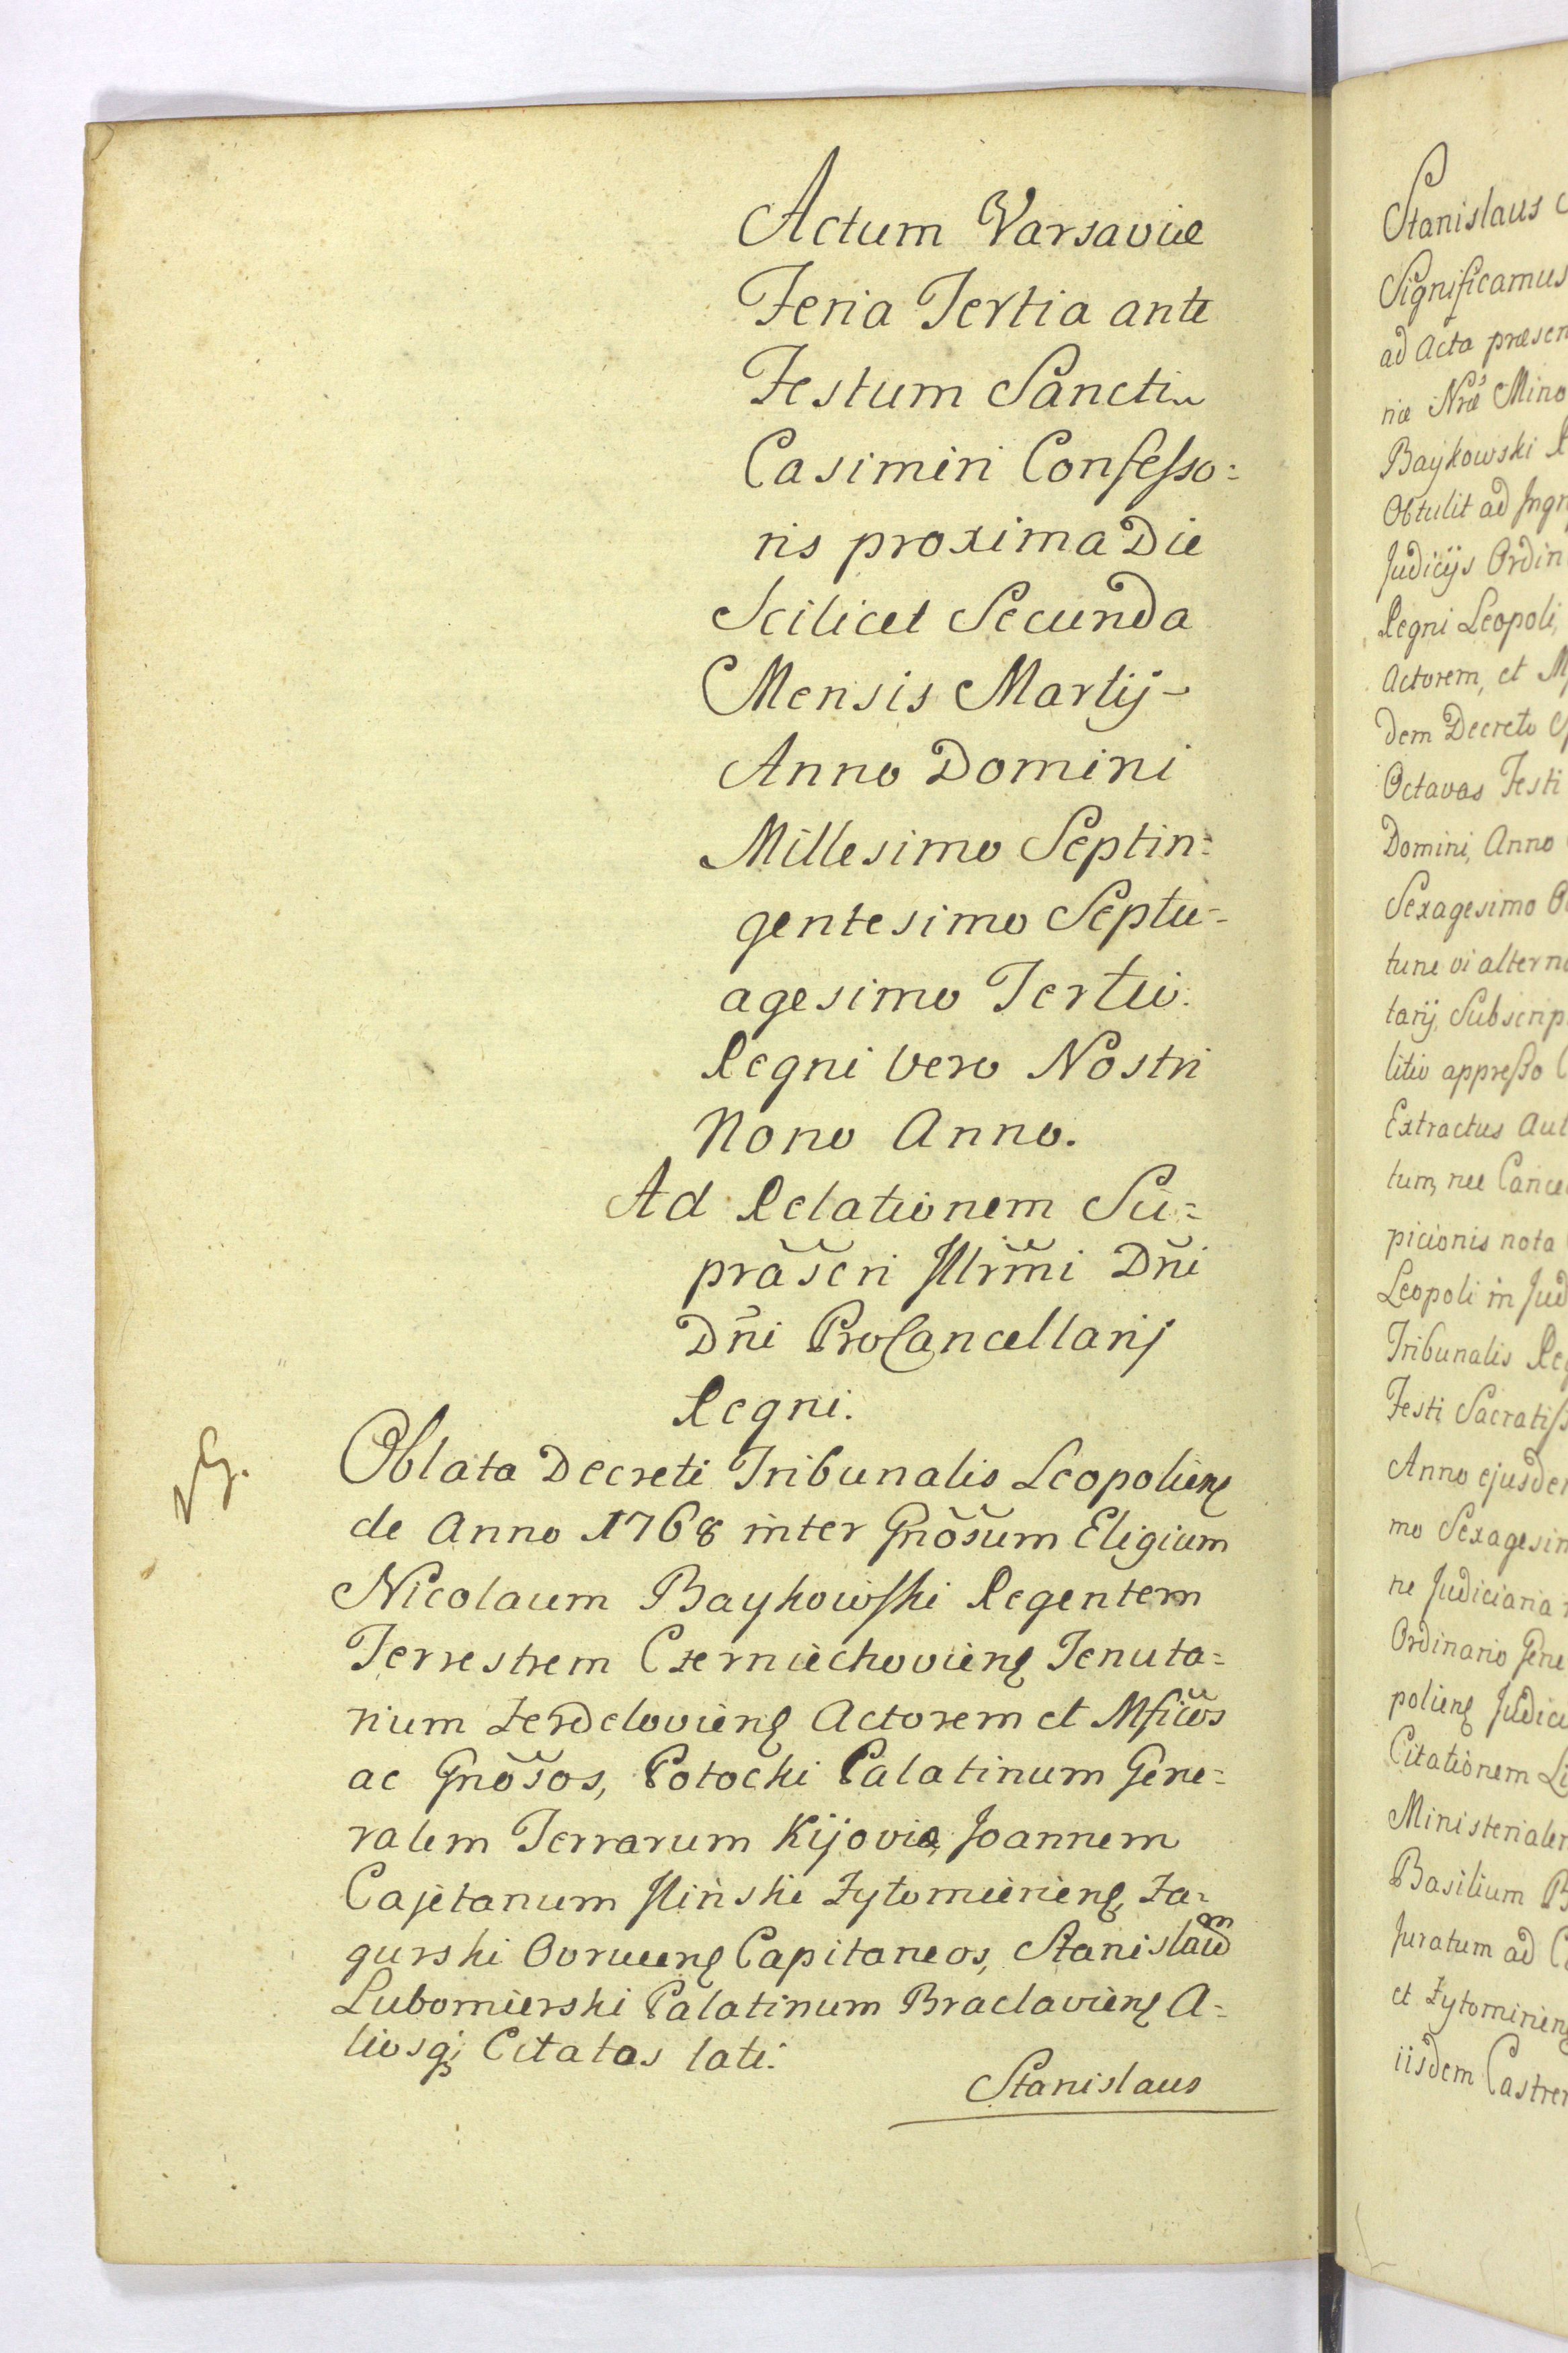 Actum Varsaviæ
Feria Tertia ante
Festum Sancti
Casimiri Confesso=
ris proxima Die
Scilicet Secunda
Mensis Martij
Anno Domini
Millesimo Septin=
gentesimo Septu=
agesimo Tertio.
Regni vero Nostri
Nono Anno.
Ad Relationem Su=
prãscri Jllrm̃i Dñi
Dñi ProCancellarij
Regni.
Oblata Decreti Tribunalis Leopolien̄
de Anno 1768 inter Gnõsum Eligium
Nicolaum Baykowski Regentem
Terrestrem Czerniechovien̄ Tenuta=
rium Zerdelovien̄ Actorem et Mficos
ac Gnõsos, Potocki Palatinum Gene=
ralem Terrarum Kijoviæ, Joannem
Cajetanum Jlinski Zytomirien̄, Za=
gurski Ovrucen̄ Capitaneos, Stanislaum
Lubomierski Palatinum Braclavien̄ A=
liosq; Citatos lati.
Stanislaus
Stanislaus
Significamus
ad Acta præsen
riæ Nræ Mino
Baykowski R
Obtulit ad Jngr
Judicijs Ordin
Regni Leopoli,
Actorem, et M
dem Decreto
Octavas Festi
Domini, Anno
Sexagesimo O
tunc vi altern
tarij Subscrip
litio appresso C
Extractus Aut
tum, nec Cance
picionis nota
Leopoli in Jud
Tribunalis Reg
Festi Sacratiss
Anno ejusdem
mo Sexagesim
ne Judiciaria
Ordinario Gene
polien̄ Judici
Citationem Li
Ministerialem
Basilium B
Juratum ad C
et Zytomirien̄
iisdem Castren